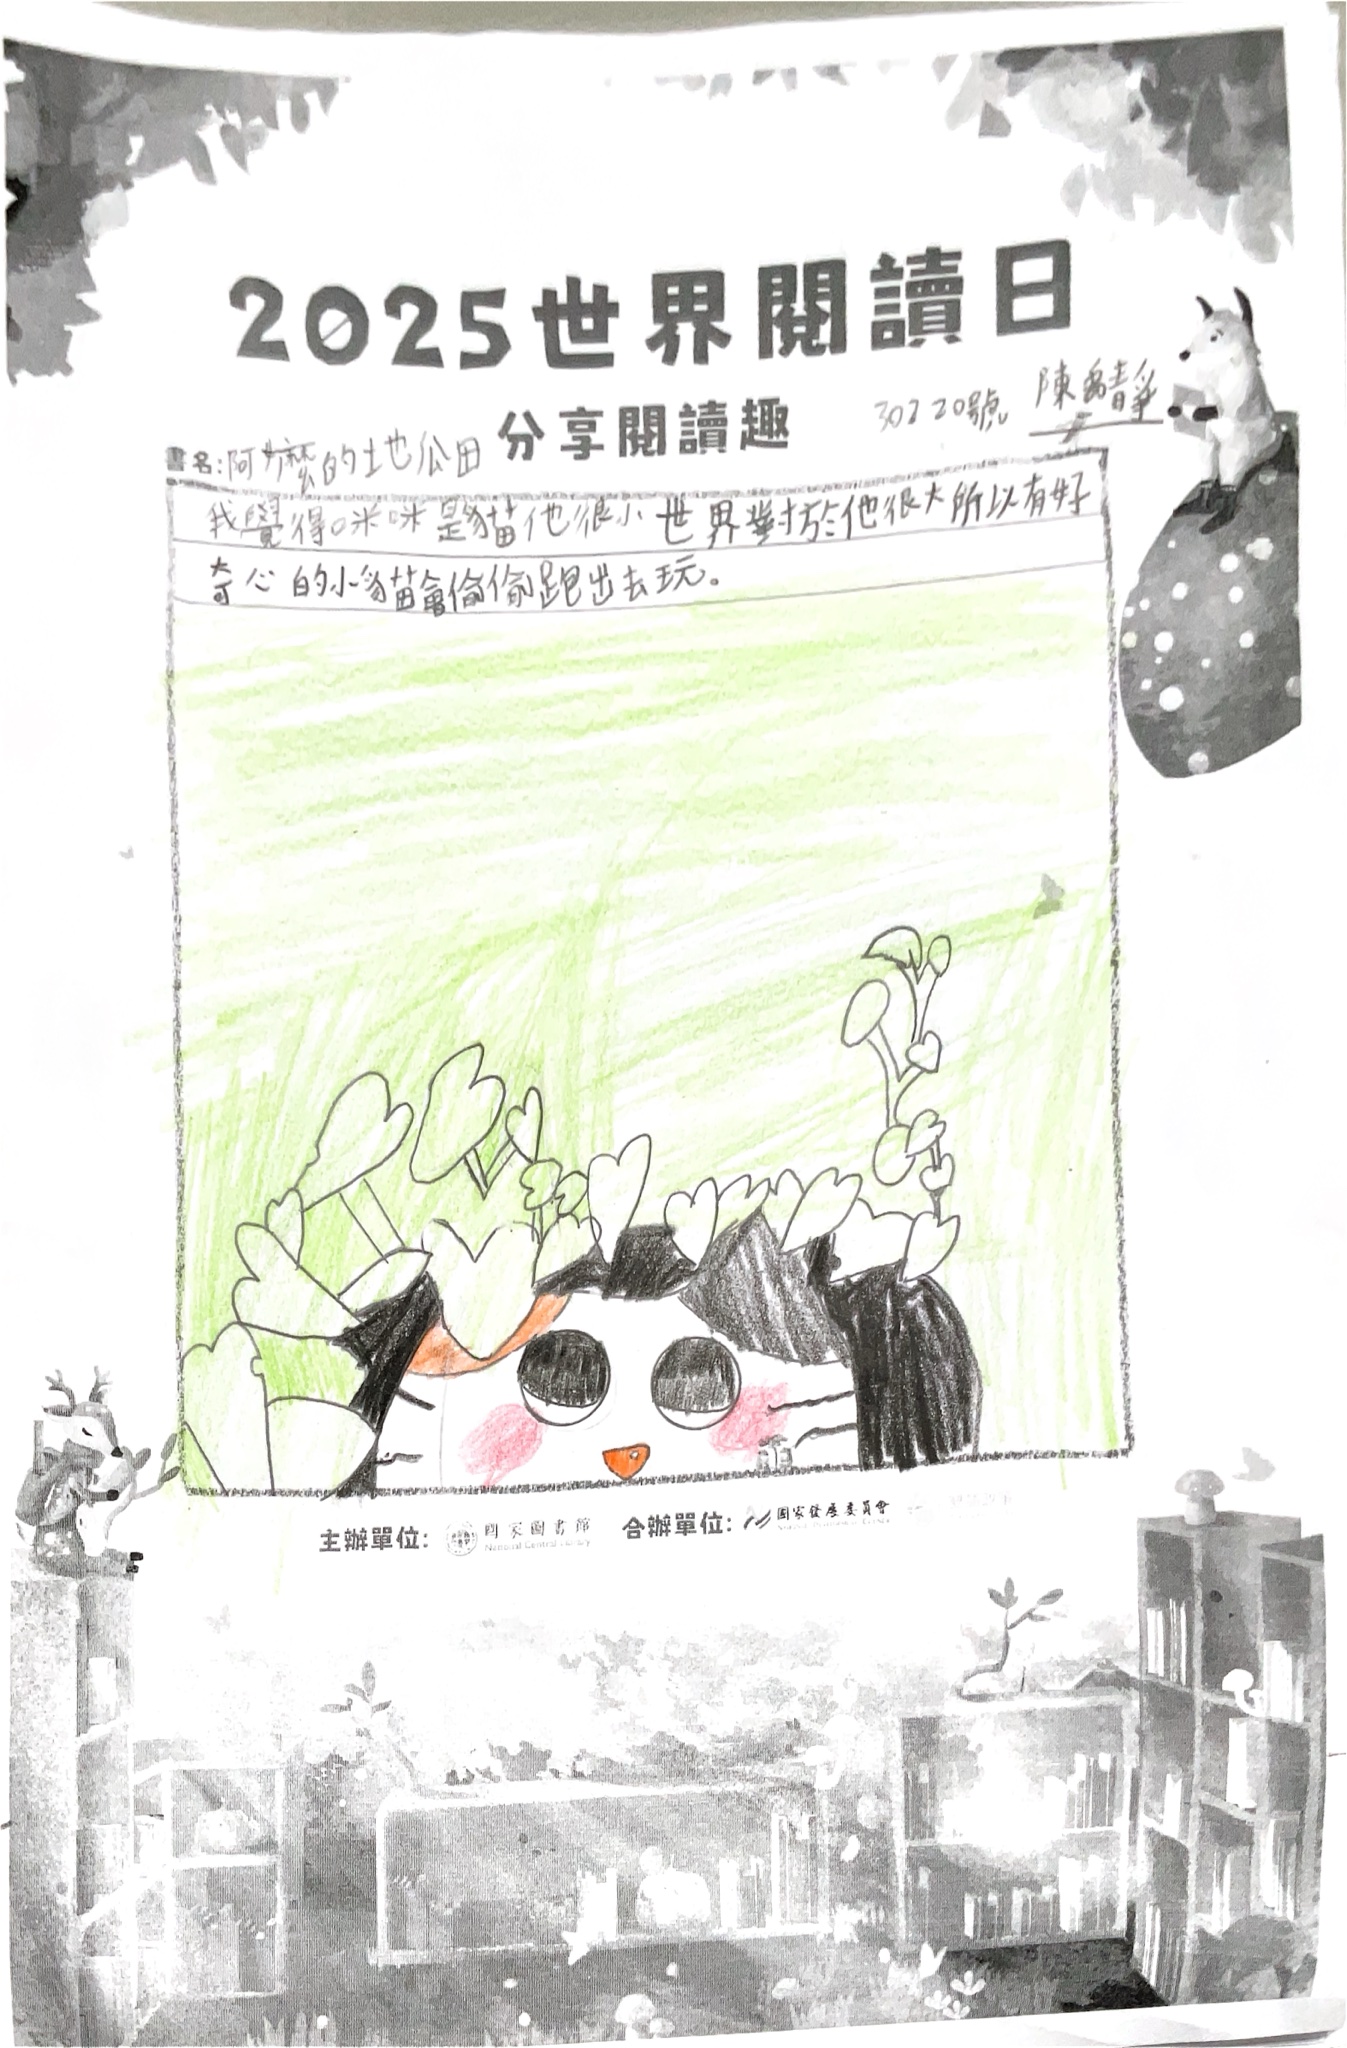 2025世界閱讀日
分享閱讀趣
302 20號 陳
書名:阿嬤的地瓜田
我覺得咪咪是貓他很小世界對於他很大所以有好
奇心的小貓會偷偷跑出去玩。
主辦單位: 國家圖書館 合辦單位: 國家發展委員會
National Central Library